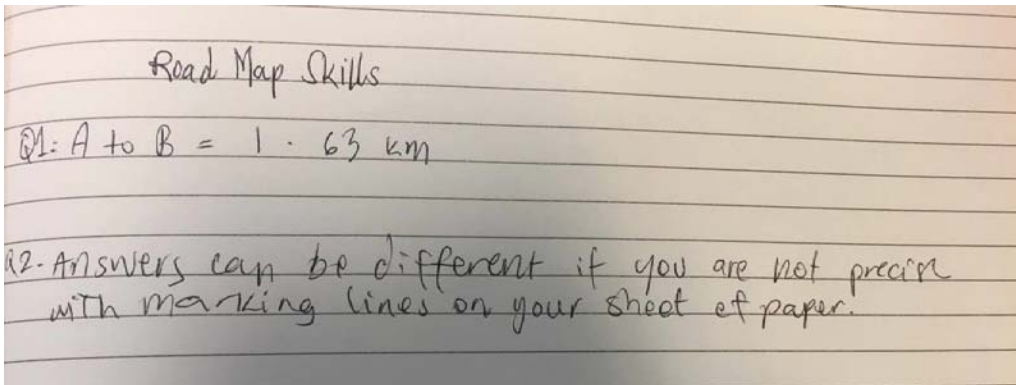 Road Map Skills
Q1: A to B = 1 . 63 km
Q2- Answers can be different if you are not precise
with marking lines on your sheet of paper.